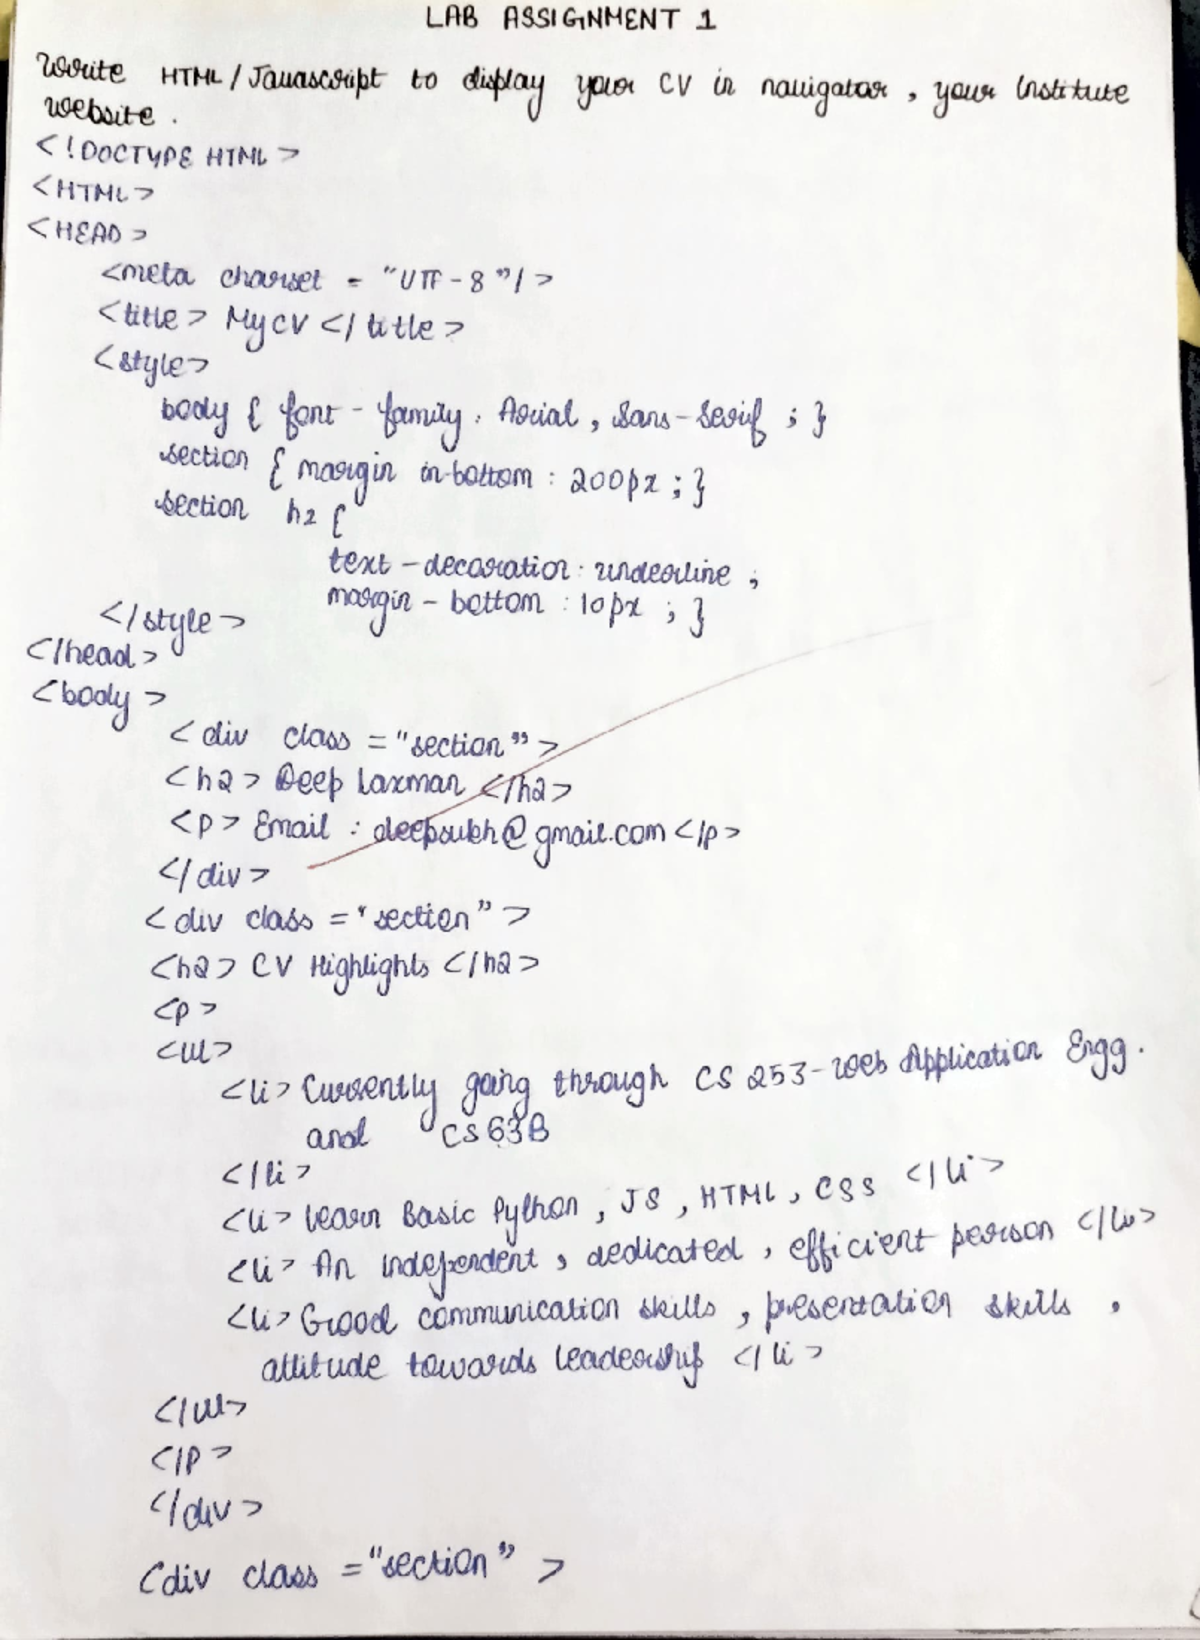 LAB ASSIGNMENT 1
Write HTML/Javascript to display your CV in navigator, your Institute
website.
<!DOCTYPE HTML>
<HTML>
<HEAD>
<meta charset = "UTF-8"/>
<title> My CV </title>
<style>
body { font-family: Arial, Sans-Serif ; }
section { margin in-bottom : 200px ; }
section h2 {
text-decoration: underline ;
margin-bottom : 10px ; }
</style>
</head>
<body>
<div class = "section">
<h2> Deep Laxman </h2>
<p> Email : deepsukh@gmail.com </p>
</div>
<div class = "section">
<h2> CV Highlights </h2>
<p>
<ul>
<li> Currently going through CS 253-Web Application Engg.
and CS 63B
</li>
<li> learn Basic Python, JS, HTML, CSS </li>
<li> An independent, dedicated, efficient person </li>
<li> Good communication skills, presentation skills,
attitude towards leadership </li>
</ul>
</p>
</div>
<div class = "section" >